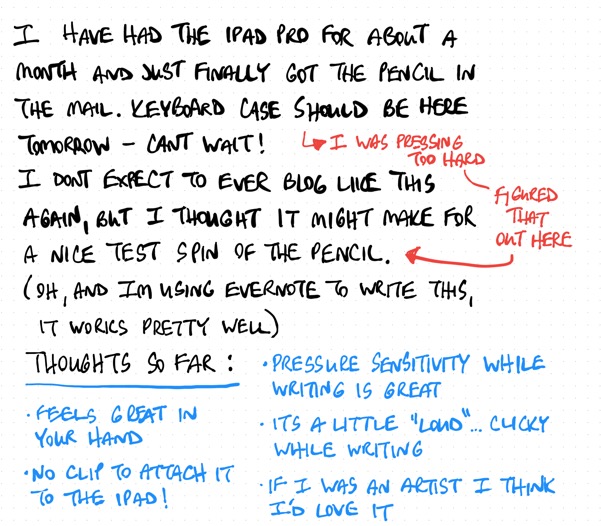 I HAVE HAD THE IPAD PRO FOR ABOUT A
MONTH AND JUST FINALLY GOT THE PENCIL IN
THE MAIL. KEYBOARD CASE SHOULD BE HERE
TOMORROW - CANT WAIT!
I WAS PRESSING
TOO HARD
FIGURED
THAT
OUT HERE
I DONT EXPECT TO EVER BLOG LIKE THIS
AGAIN, BUT I THOUGHT IT MIGHT MAKE FOR
A NICE TEST SPIN OF THE PENCIL.
(OH, AND IM USING EVERNOTE TO WRITE THIS,
IT WORKS PRETTY WELL)
THOUGHTS SO FAR:
• FEELS GREAT IN
YOUR HAND
• NO CLIP TO ATTACH IT
TO THE IPAD!
• PRESSURE SENSITIVITY WHILE
WRITING IS GREAT
• ITS A LITTLE "LOUD"... CLICKY
WHILE WRITING
• IF I WAS AN ARTIST I THINK
I'D LOVE IT